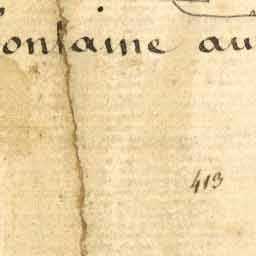 fontaine au
413